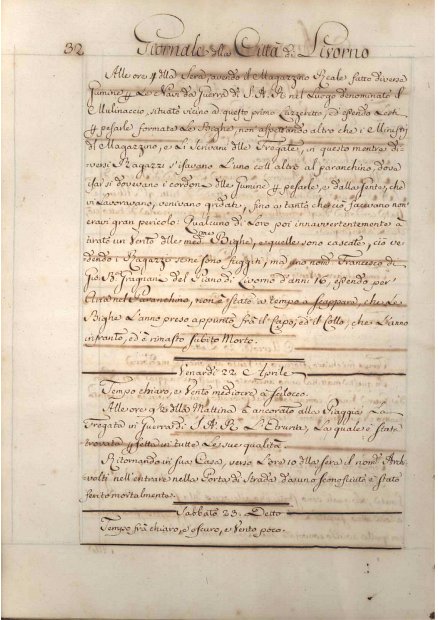 32 Giornale della Città di Livorno
Alle ore 4 della Sera, avendo il Magazzino Reale fatto diverse
Gumine p Le Navi da Guerra di S. A. R. nel Luogo denominato il
Mulinaccio, situato vicino a questo primo Lazzeretto, ed essendo
p pesarle formate Le Bighe, non aspettando altro che i Ministri
del Magazzino, e Li Scrivani delle Fregate, in questo mentre di-
versi Ragazzi si facevano L'uno coll'altro al paranchino, dove
si dovevano i cordoni delle Gumine p pesarle, e dalla Gente, che
vi Lavoravano, venivano gridati, fino a tanto che ciò facevano non
eravi gran pericolo: Qualcuno di Loro poi innavvertentemente à
tirato un Vento delle med.me Bighe, e quelle sono cascate, ciò ve-
dendo i Ragazzi se ne sono fuggiti, ma uno nom.o Francesco di
Gio. B. Fragnani del Piano di Livorno d'anni 16, essendo per
nel Paranchino, non è stato a tempo a scappare, che Le
Bighe L'anno preso appunto frà il Capo, ed il Collo, che L'anno
infranto, ed è rimasto subito Morto.
Venardì 22 Aprile
Tempo chiaro, e Vento mediocre a scilocco.
Alle ore 9½ della Mattina à ancorato alla Piaggia La
Fregata in Guerra di S. A. R. L'Etruria, La quale è stata
trovata p fetta in tutte Le sue qualità.
Ritornando in sua Casa, verso L'ore 10 della sera il nom.o
nell'entrare nella Porta di Strada da uno sconosciuto è stato
ferito mortalmente.
Sabbato 23. Detto
Tempo frà chiaro, e oscuro, e Vento poco.